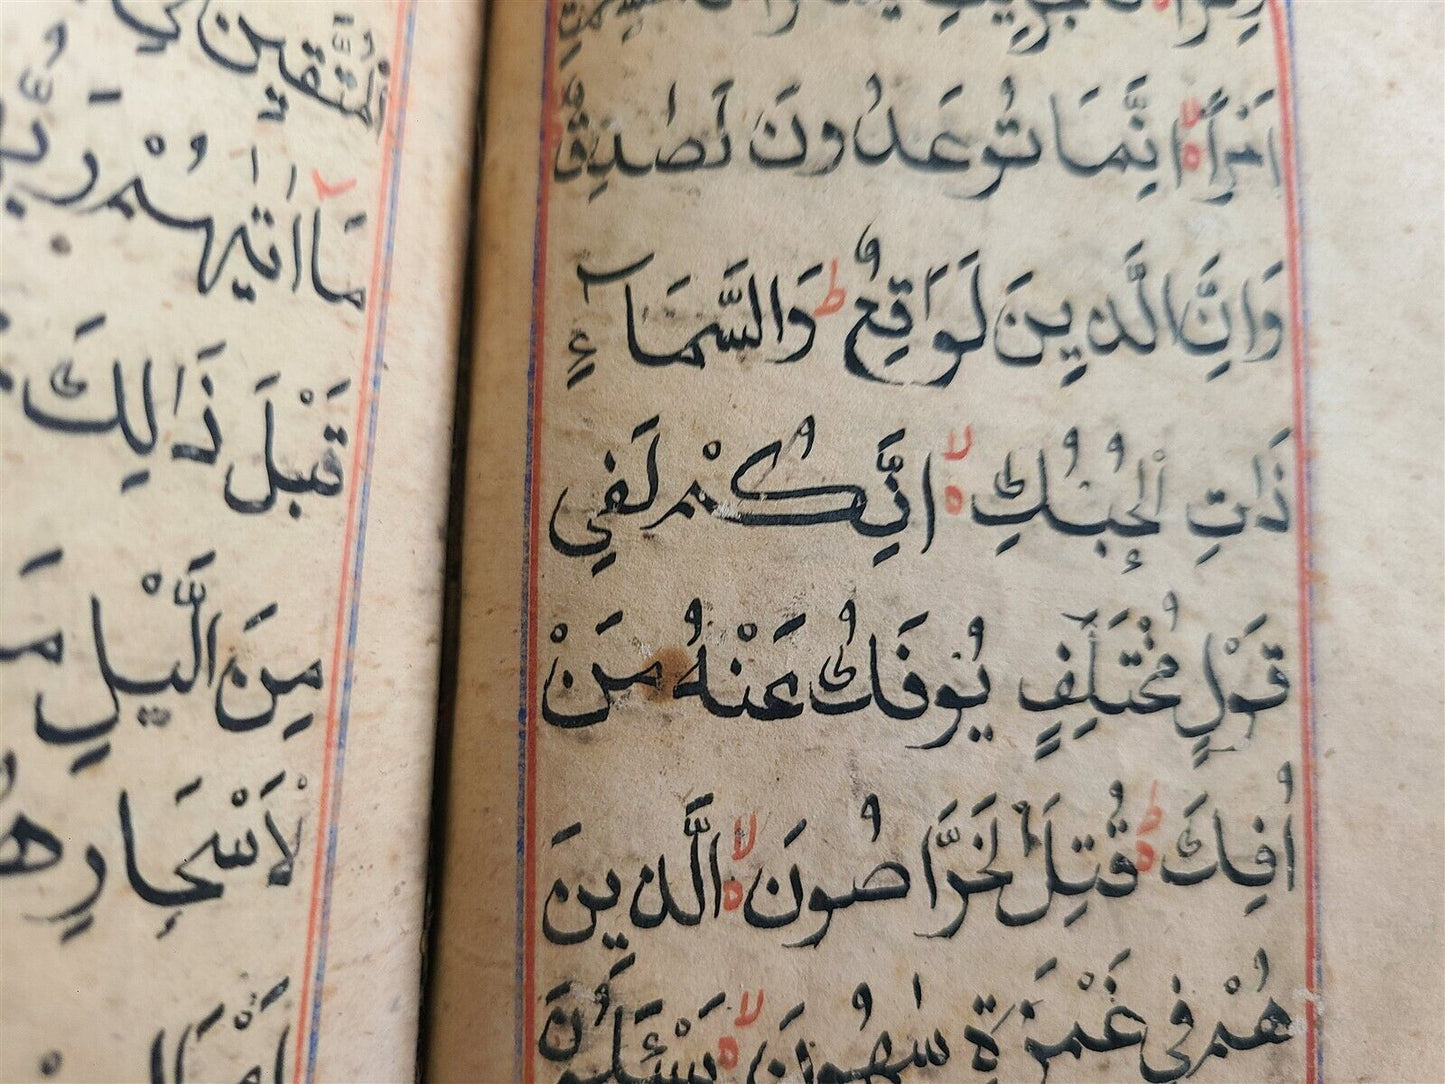 اَمْرًا ۙ اِنَّمَا تُوعَدُونَ لَصٰدِقٌ
وَاِنَّ الدِّينَ لَوَاقِعٌ ط وَالسَّمَآءِ
ذَاتِ الْحُبُكِ لا اِنَّكُمْ لَفِي
قَوْلٍ مُخْتَلِفٍ يُوفَكُ عَنْهُ مَنْ
اُفِكَ ط قُتِلَ الْخَرَّاصُونَ لا الَّذِينَ
هُمْ فِي غَمْرَةٍ سٰهُونَ لا يَسْئَلُونَ
الْمُتَّقِينَ فِي
مَآ اٰتٰهُمْ
قَبْلَ ذٰلِكَ
مِنَ الَّيْلِ
لْاَسْحَارِ